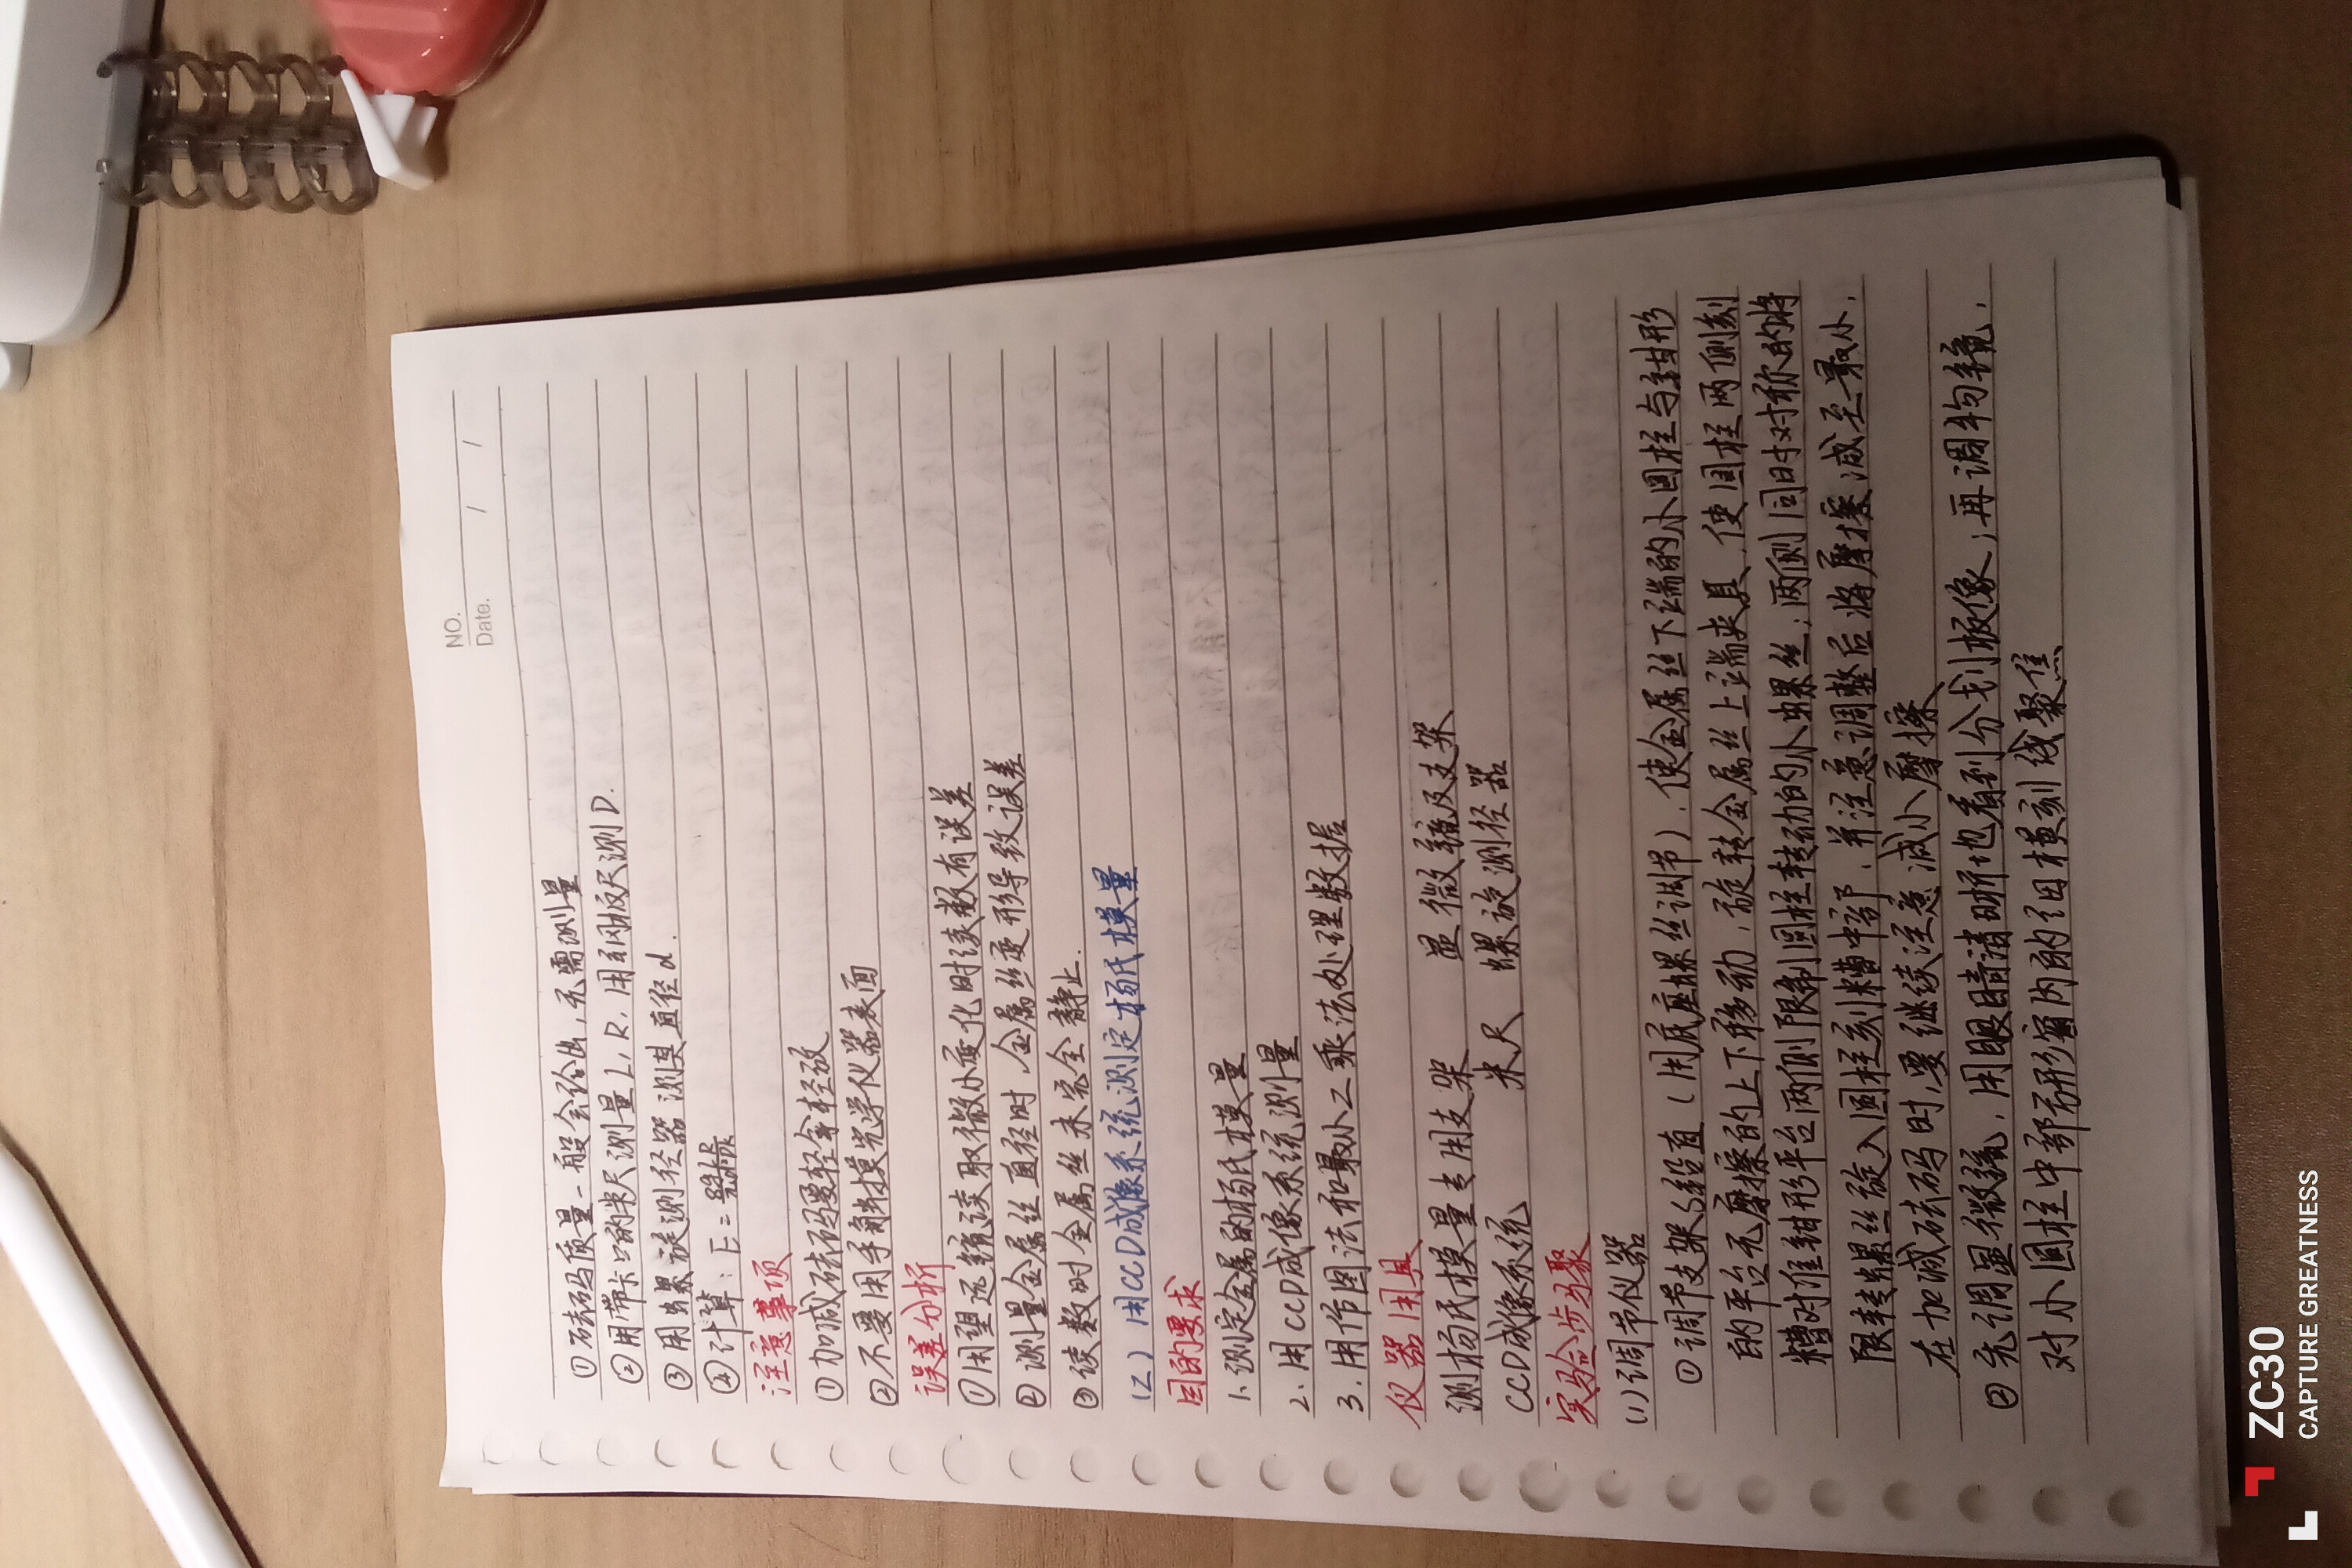 NO.
Date. / /
①砝码质量一般会给出,无需测量
②用带卡口的米尺测量L,R,用钢板尺测D.
③用螺旋测径器测其直径d.
④计算:E=
注意事项
①加减砝码要轻拿轻放
②不要用手触摸光学仪器表面
误差分析
①用望远镜读取微小变化时读数有误差
②测量金属丝直径时,金属丝变形导致误差
③读数时金属丝未完全静止.
(2)用CCD成像系统测定杨氏模量
目的要求
1.测定金属的杨氏模量
2.用CCD成像系统测量
3.用作图法和最小二乘法处理数据
仪器用具
测杨氏模量专用支架 显微镜及支架
CCD成像系统 米尺 螺旋测径器
实验步骤
(1)调节仪器
①调节支架S铅直(用底座螺丝调节),使金属丝下端的小圆柱与钳形
的平台无摩擦的上下移动,旋转金属丝上端夹具,使圆柱两侧刻
槽对准钳形平台两侧限制圆柱转动的小螺丝;两侧同时对称的将
限转螺丝旋入圆柱刻槽中部,并注意调整后将摩擦减至最小,
在加减砝码时,要继续注意减小摩擦
②先调显微镜,用眼睛清晰地看到分划板像;再调物镜,
对小圆柱中部方形窗内的细横刻线聚焦
ZC30
CAPTURE GREATNESS